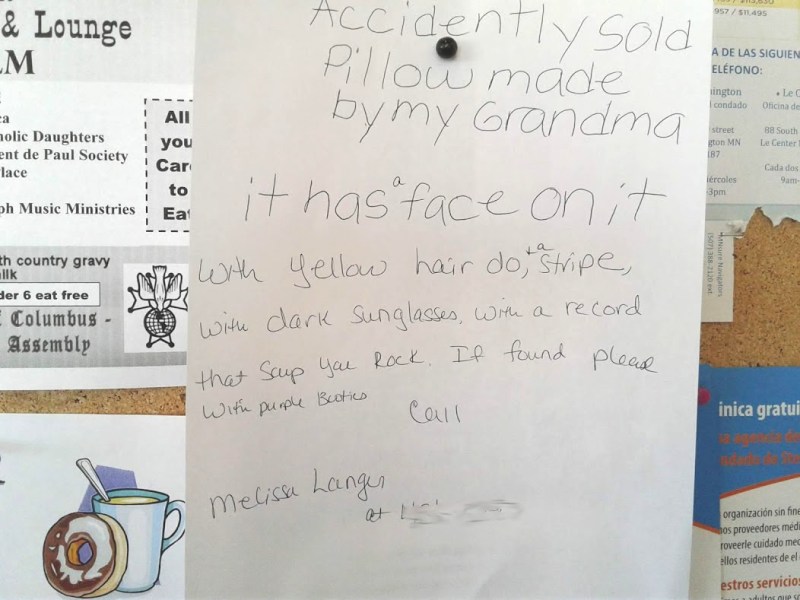 & Lounge
LM
ca
holic Daughters
ent de Paul Society
lace
ph Music Ministries
All
you
Car
to
Eat
th country gravy
ilk
der 6 eat free
f Columbus -
Assembly
Accidently Sold
Pillow made
by my Grandma
it has a face on it
with yellow hair do, + a stripe,
with dark sunglasses, with a record
that says you Rock. If found please
with purple Booties
Call
Melissa Langer
at
957 / $11,495
A DE LAS SIGUIEN
ELÉFONO:
ington
condado
street
gton MN
187
ércoles
3pm
• Le C
Oficina de
88 South
Le Center
Cada dos
9am-
inica gratui
organización sin fine
os proveedores médi
roveerle cuidado med
ellos residentes de el
estros servicios